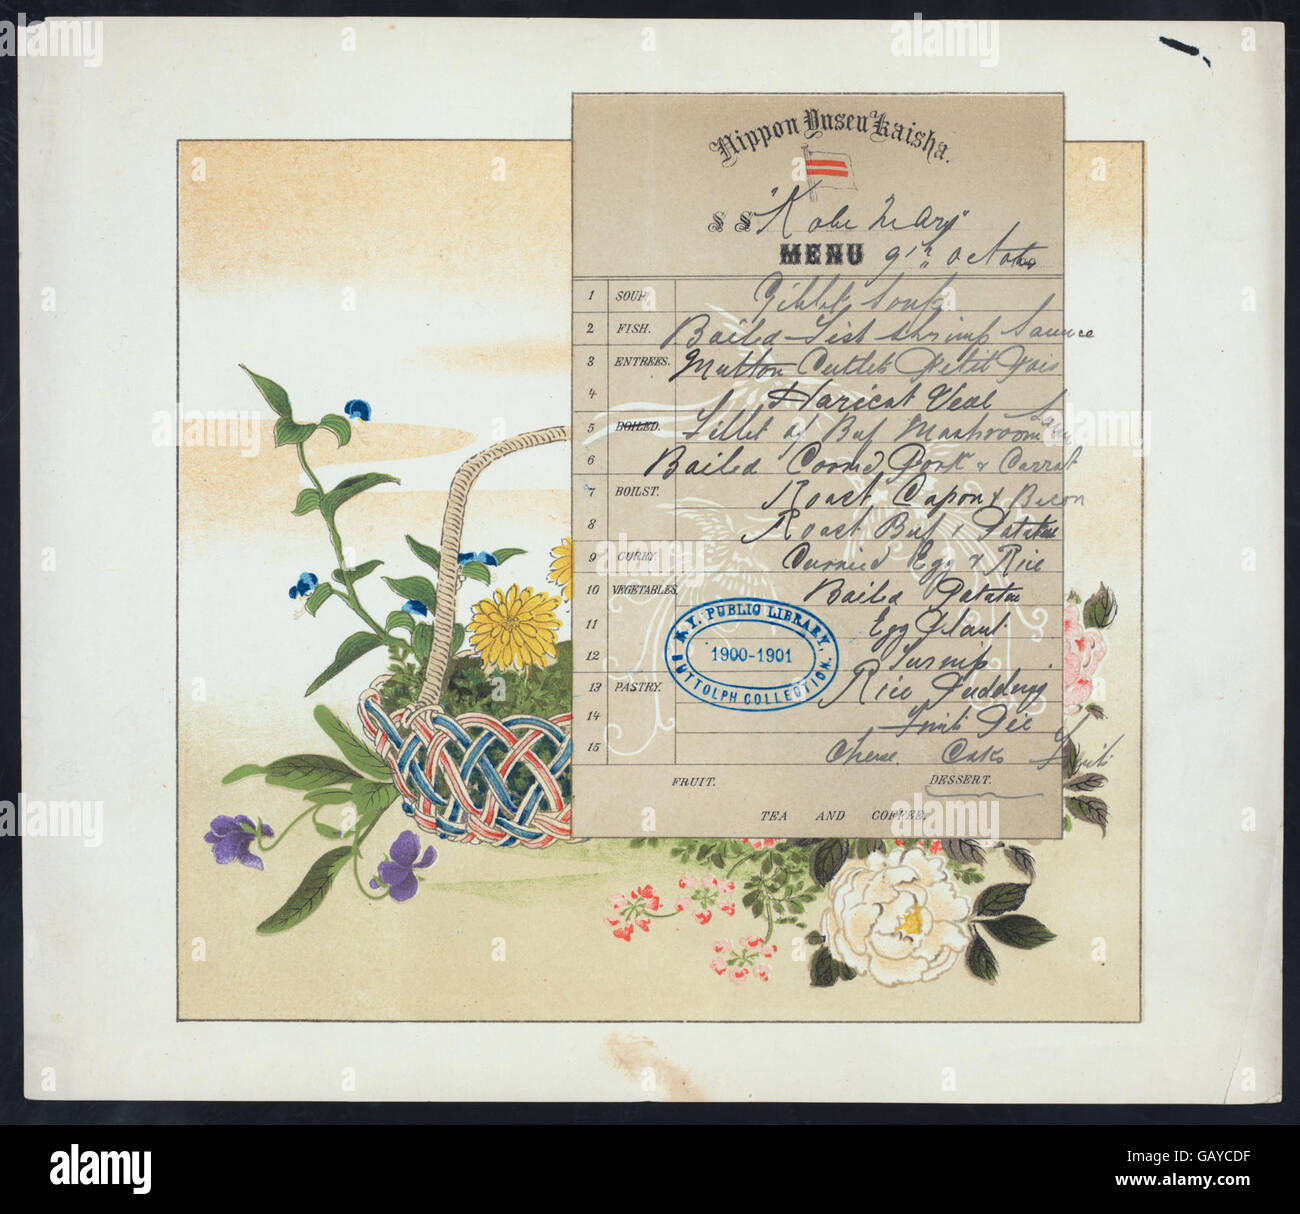 Nippon Yusen Kaisha.
S S "Kobe Maru"
MENU 9th October
1 SOUP. Giblet Soup
2 FISH. Boiled Fish Shrimp Saunce
3 ENTREES. Mutton Cutlet Petit Pois
4 Haricot Veal
5 BOILED. Fillet of Beef Mashroom Sauce
6 Boiled Corned Pork & Carrot
7 BOILST. Roast Capon & Becon
8 Roast Beef & Patatoe
9 CURRY. Curried Egg & Rice
10 VEGETABLES. Boiled Patatoe
11 Egg Plant
12 Turnip
13 PASTRY. Rice Pudding
14 Fruit Pie
15 Cheese. Cake Fruit
FRUIT. DESSERT.
TEA AND COFFEE.
N. Y. PUBLIC LIBRARY,
1900-1901
BUTTOLPH COLLECTION.
alamy
a
alamy
Image ID: GAYCDF
www.alamy.com